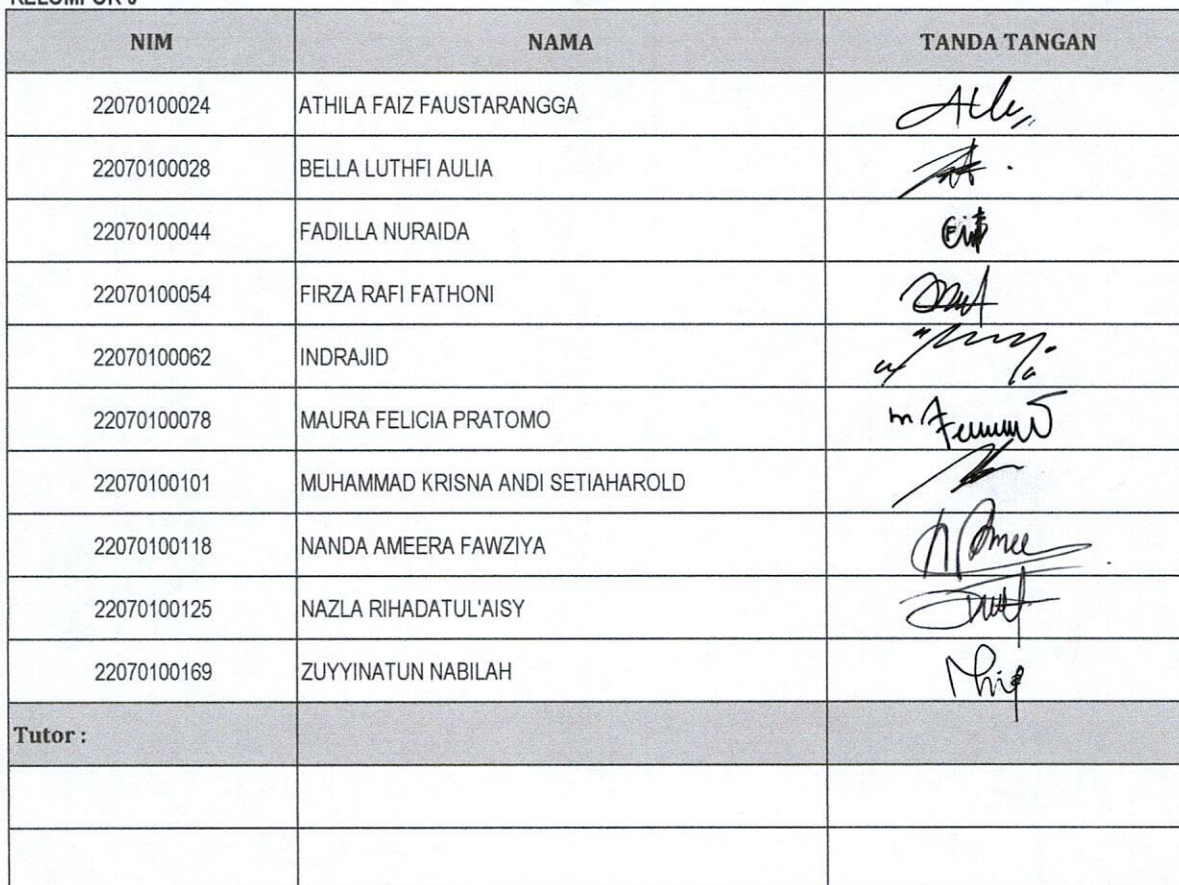 NIM NAMA TANDA TANGAN
22070100024 ATHILA FAIZ FAUSTARANGGA
22070100028 BELLA LUTHFI AULIA
22070100044 FADILLA NURAIDA
22070100054 FIRZA RAFI FATHONI
22070100062 INDRAJID
22070100078 MAURA FELICIA PRATOMO
22070100101 MUHAMMAD KRISNA ANDI SETIAHAROLD
22070100118 NANDA AMEERA FAWZIYA
22070100125 NAZLA RIHADATUL'AISY
22070100169 ZUYYINATUN NABILAH
Tutor :